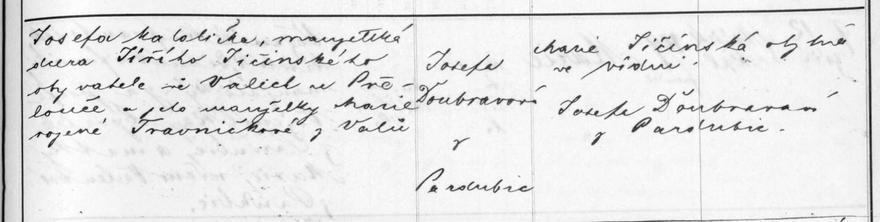 Josefa katolička, manželská
dcera Jiřího Jičínského
obyvatele ve Valích u Pře-
louče a jeho manželky Marie
rozené Travničkové z Valů
Josefa
Doubravová
z
Pardubic
Marie Jičínská obytná
ve Vídni
Josefa Doubravová
z Pardubic.